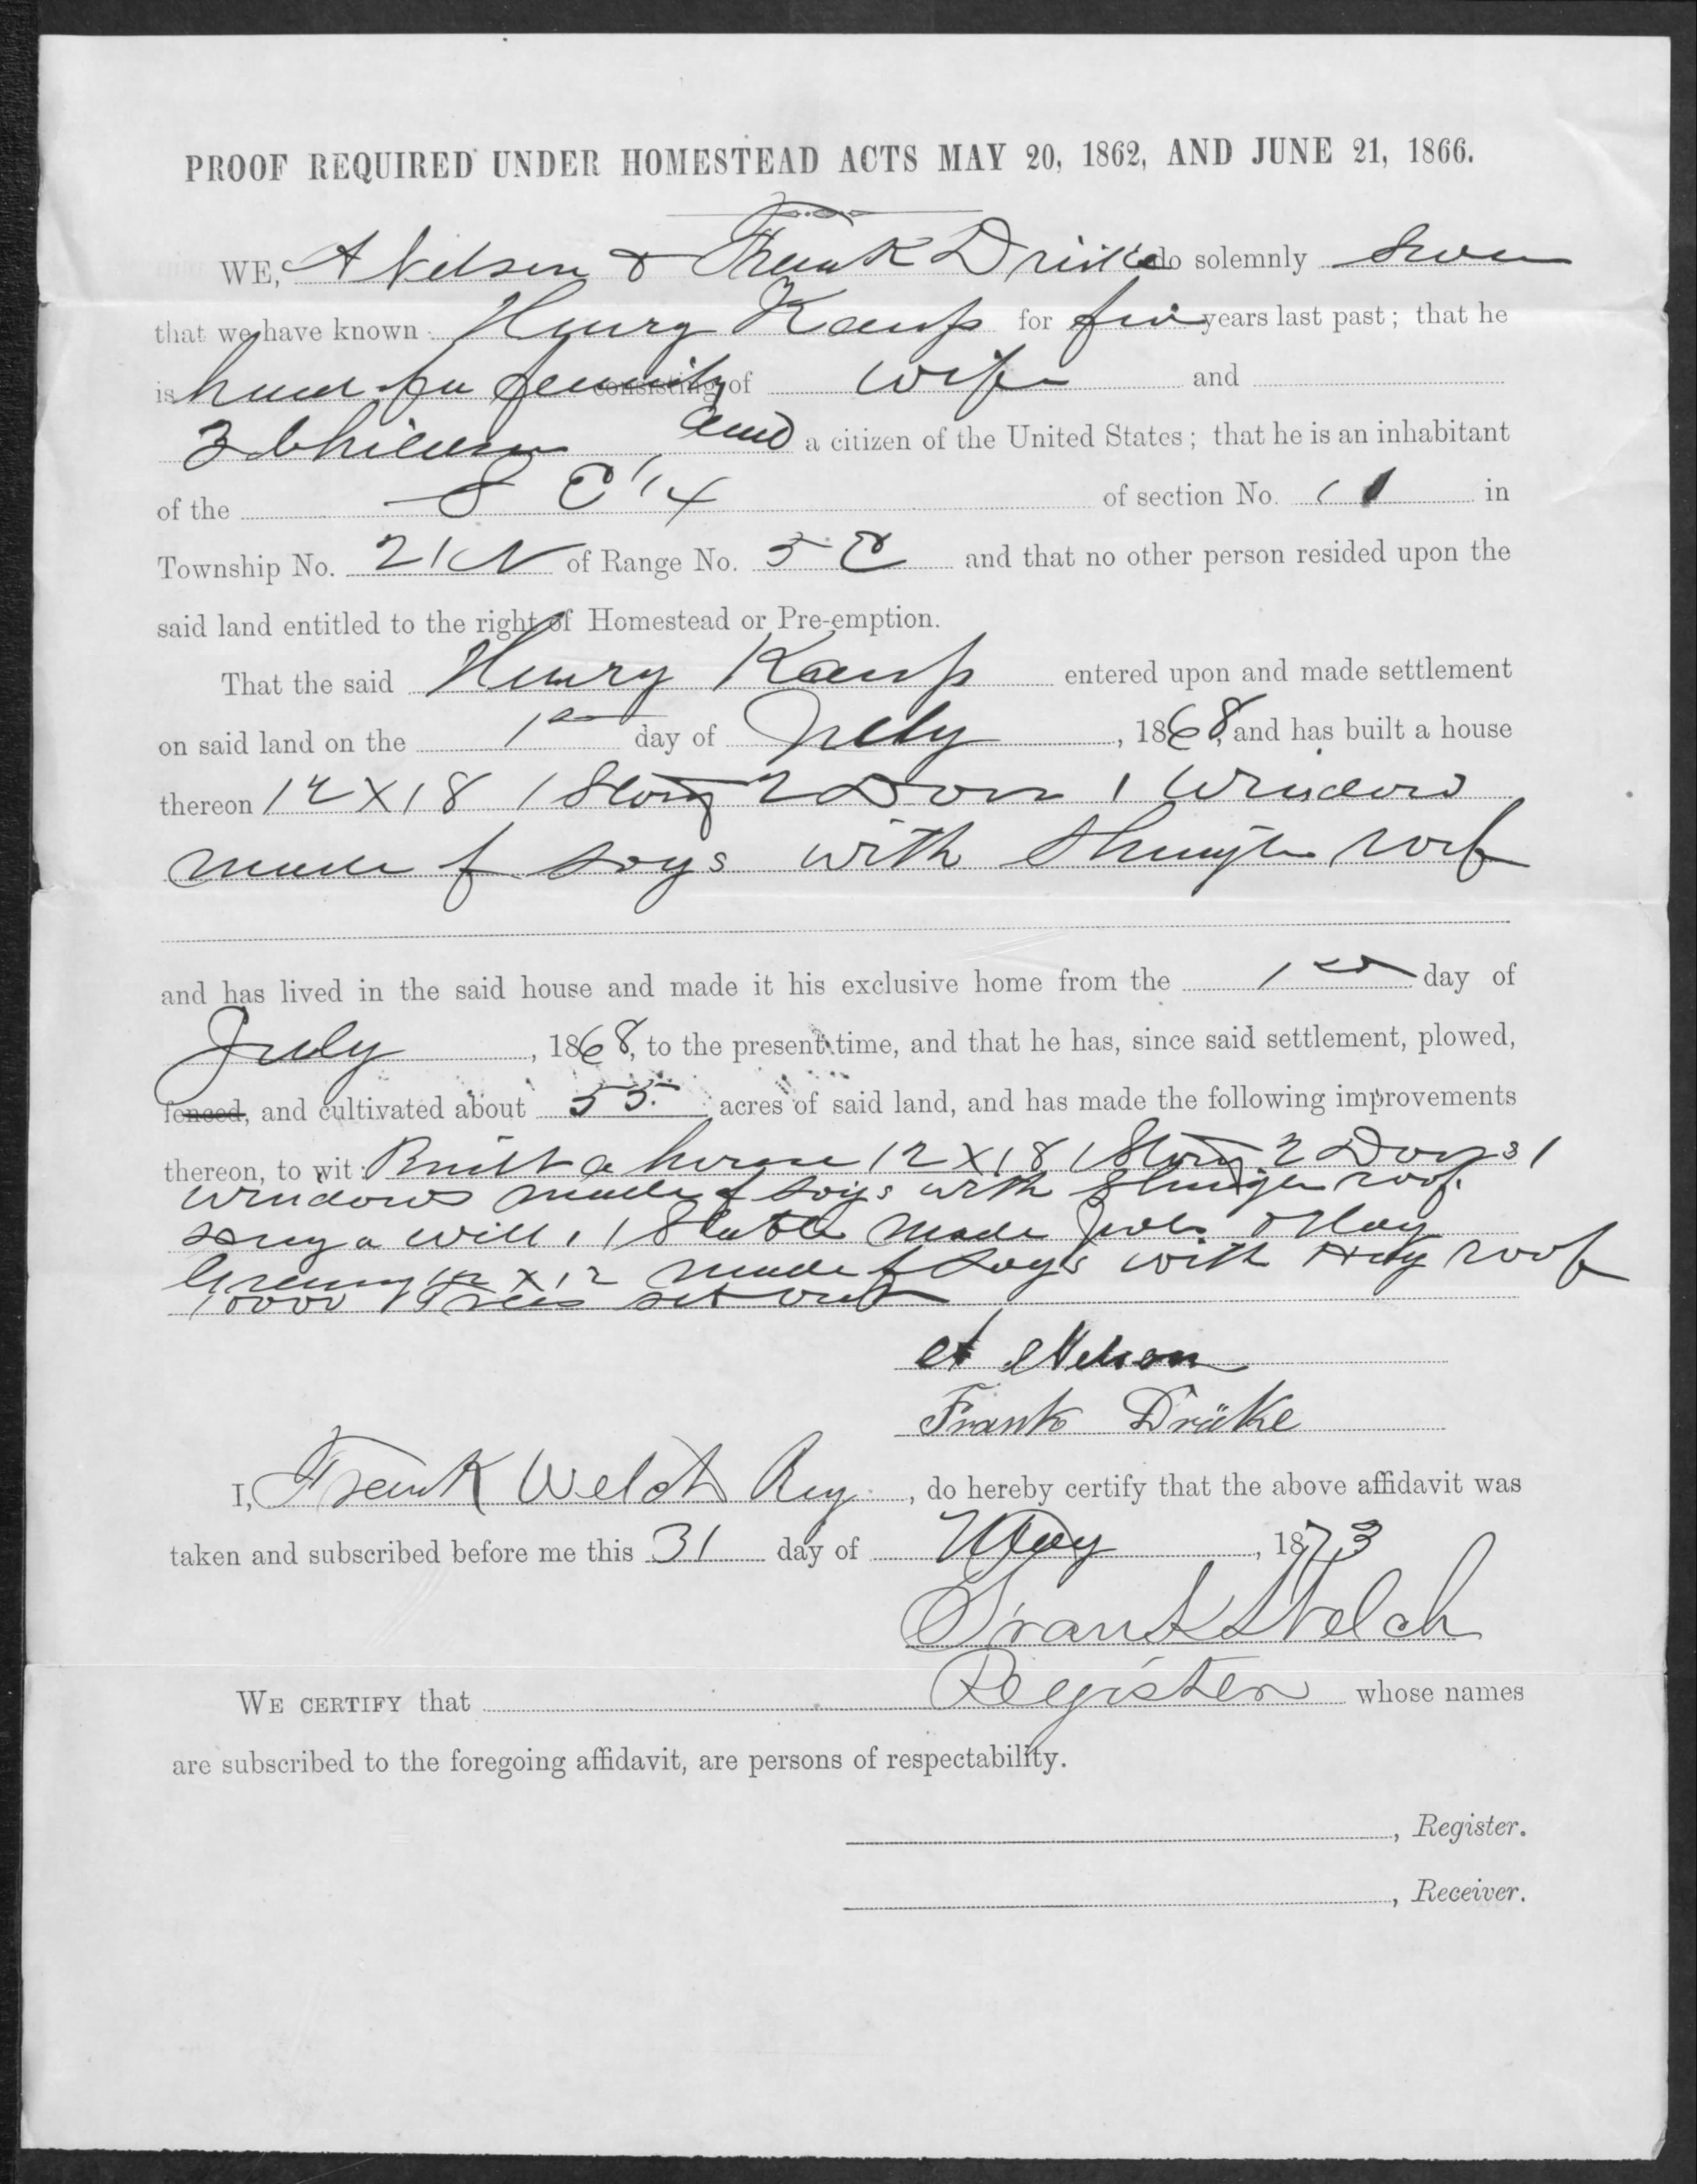 PROOF REQUIRED UNDER HOMESTEAD ACTS MAY 20, 1862, AND JUNE 21, 1866.
WE, A Nelson & Frank Drüke do solemnly swear
that we have known Henry Kamp for five years last past; that he
is head of a family consisting of wife and
3 Children and a citizen of the United States; that he is an inhabitant
of the S E 1/4 of section No. 11 in
Township No. 21 N of Range No. 5 E and that no other person resided upon the
said land entitled to the right of Homestead or Pre-emption.
That the said Henry Kamp entered upon and made settlement
on said land on the 1st day of July, 1868, and has built a house
thereon 12 X 18 1 Story 2 Doors 1 Window
made of Logs with Shingle roof
and has lived in the said house and made it his exclusive home from the 1st day of
July, 1868, to the present time, and that he has, since said settlement, plowed,
fenced, and cultivated about 55 acres of said land, and has made the following improvements
thereon, to wit: Built a house 12 X 18 1 Story 2 Doors 1
windows made of Logs with Shingle roof.
a well, 1 Stable made & Hay
Granary 12 X 12 made of Logs with Hay roof
10000 Trees set out
A Nelson
Frank Drüke
I, Frank Welch Reg., do hereby certify that the above affidavit was
taken and subscribed before me this 31 day of May, 1873
Frank Welch
Register
WE CERTIFY that whose names
are subscribed to the foregoing affidavit, are persons of respectability.
, Register.
, Receiver.